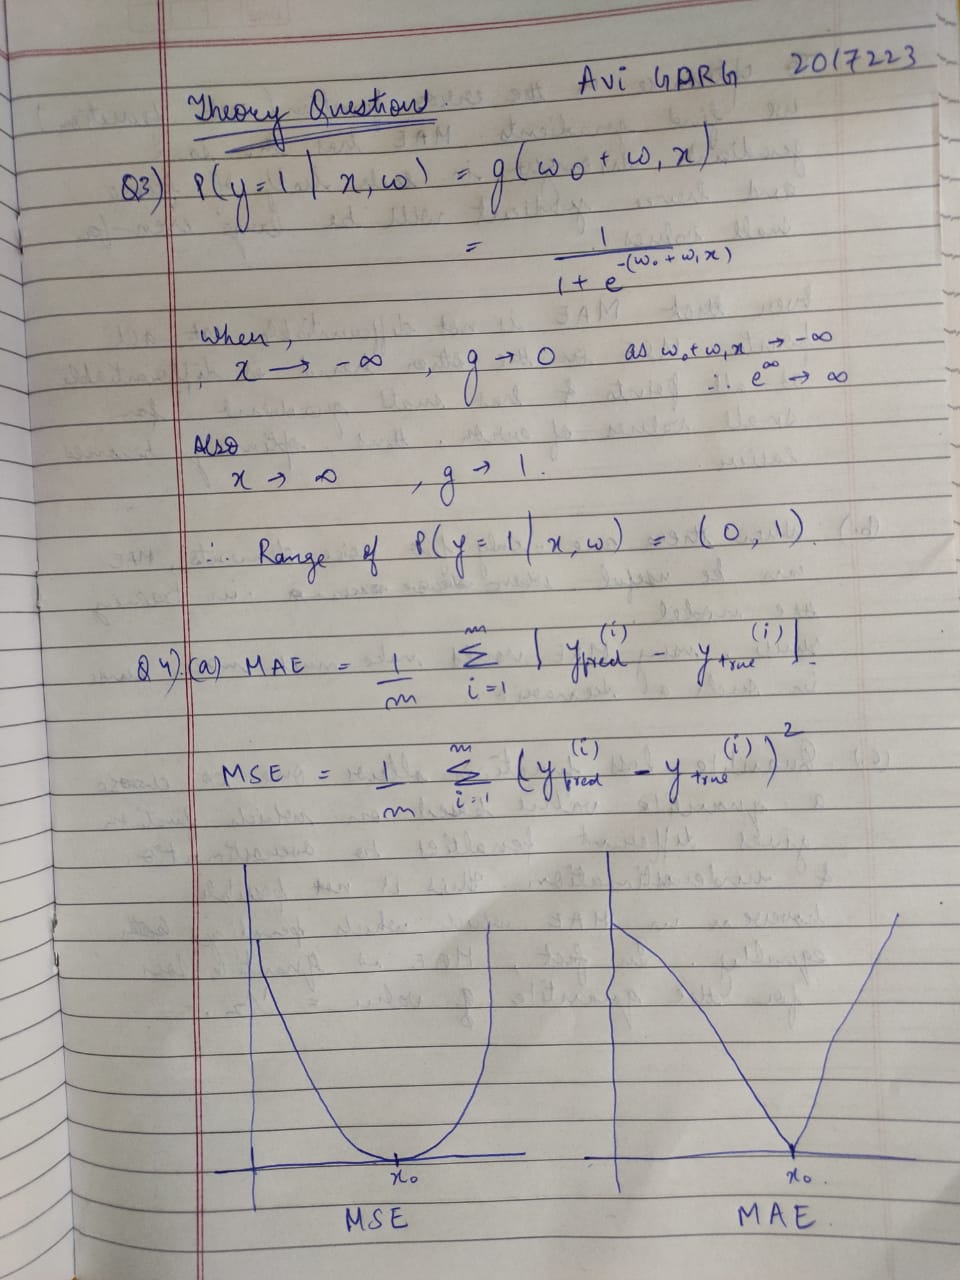 Avi GARG 2017223
Theory Questions.
Q3) P(y=1 | x, w) = g(w₀ + w₁ x)
= 1 / (1 + e^-(w₀ + w₁x))
When,
x → -∞ , g → 0 as w₀ + w₁ x → -∞
∴ e^∞ → ∞
Also
x → ∞ , g → 1.
∴ Range of P(y=1 | x, w) = (0, 1).
Q4) (a) MAE = 1/m Σ_{i=1}^{m} | y_pred^(i) - y_true^(i) |.
MSE = 1/m Σ_{i=1}^{m} (y_pred^(i) - y_true^(i))²
x₀ x₀.
MSE MAE.